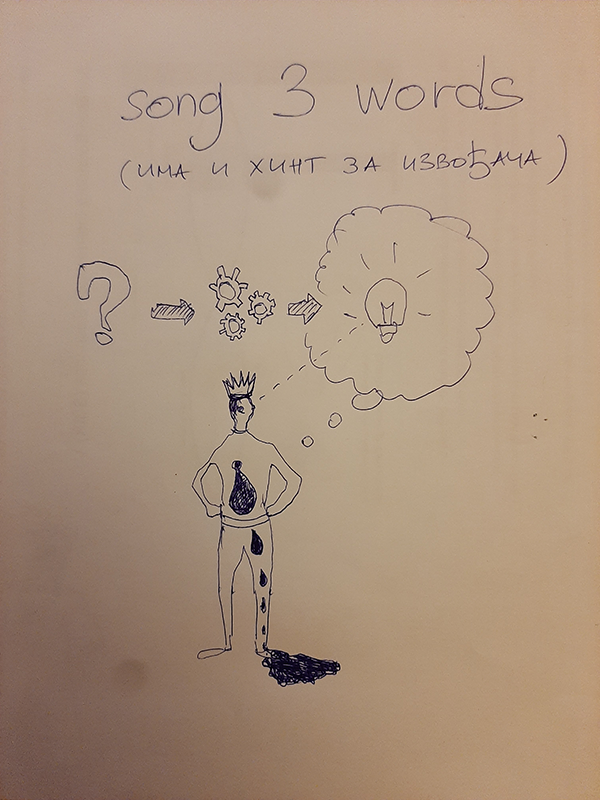 song 3 words
(ИМА И ХИНТ ЗА ИЗВОЂАЧА)
?